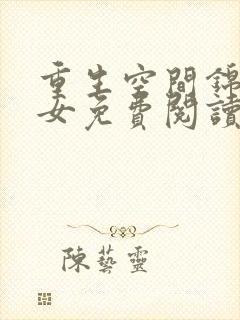 重生空間錦
女免費閱讀
陳藝靈